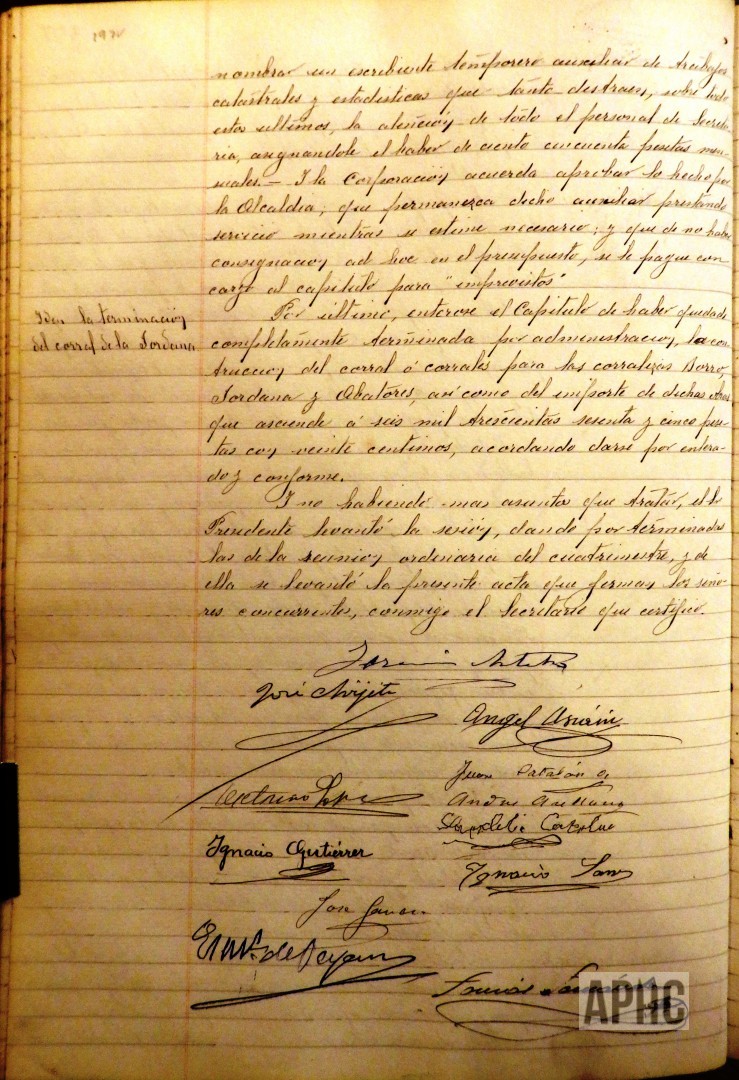 nombrar un escribiente temporero auxiliar de trabajos
catastrales y estadisticas que tanto distraen, sobre todo
estos ultimos, la atencion de todo el personal de Secreta-
ria, asignandole el haber de ciento cincuenta pesetas men-
suales. – I la Corporacion acuerda aprobar lo hecho por
la Alcaldia; que permanezca dicho auxiliar prestando
servicio mientras se estime necesario; y que de no haber
consignacion ad hoc en el presupuesto, se le pague con
cargo al capitulo para "imprevistos"
Iden la terminacion
del corral de la Tordana
Por ultimo, enterose el Capitulo de haber quedado
completamente terminada por administracion, la cons-
truccion del corral ó corrales para las corralizas Borro,
Tordana y Abatores, asi como del importe de dichas obras
que asciende á seis mil trescientas sesenta y cinco pese-
tas con veinte centimos, acordando darse por entera-
do y conforme.
I no habiendo mas asuntos que tratar, el Sr
Presidente levantó la sesion, dando por terminadas
las de la reunion ordinaria del cuatrimestre, y de
ella se levantó la presente acta que firman los seño-
res concurrentes, conmigo el Secretario que certifico.
José
Angel
Juan
Andres Arellano
Ignacio Gutiérrez
Ignacio
José
APHC